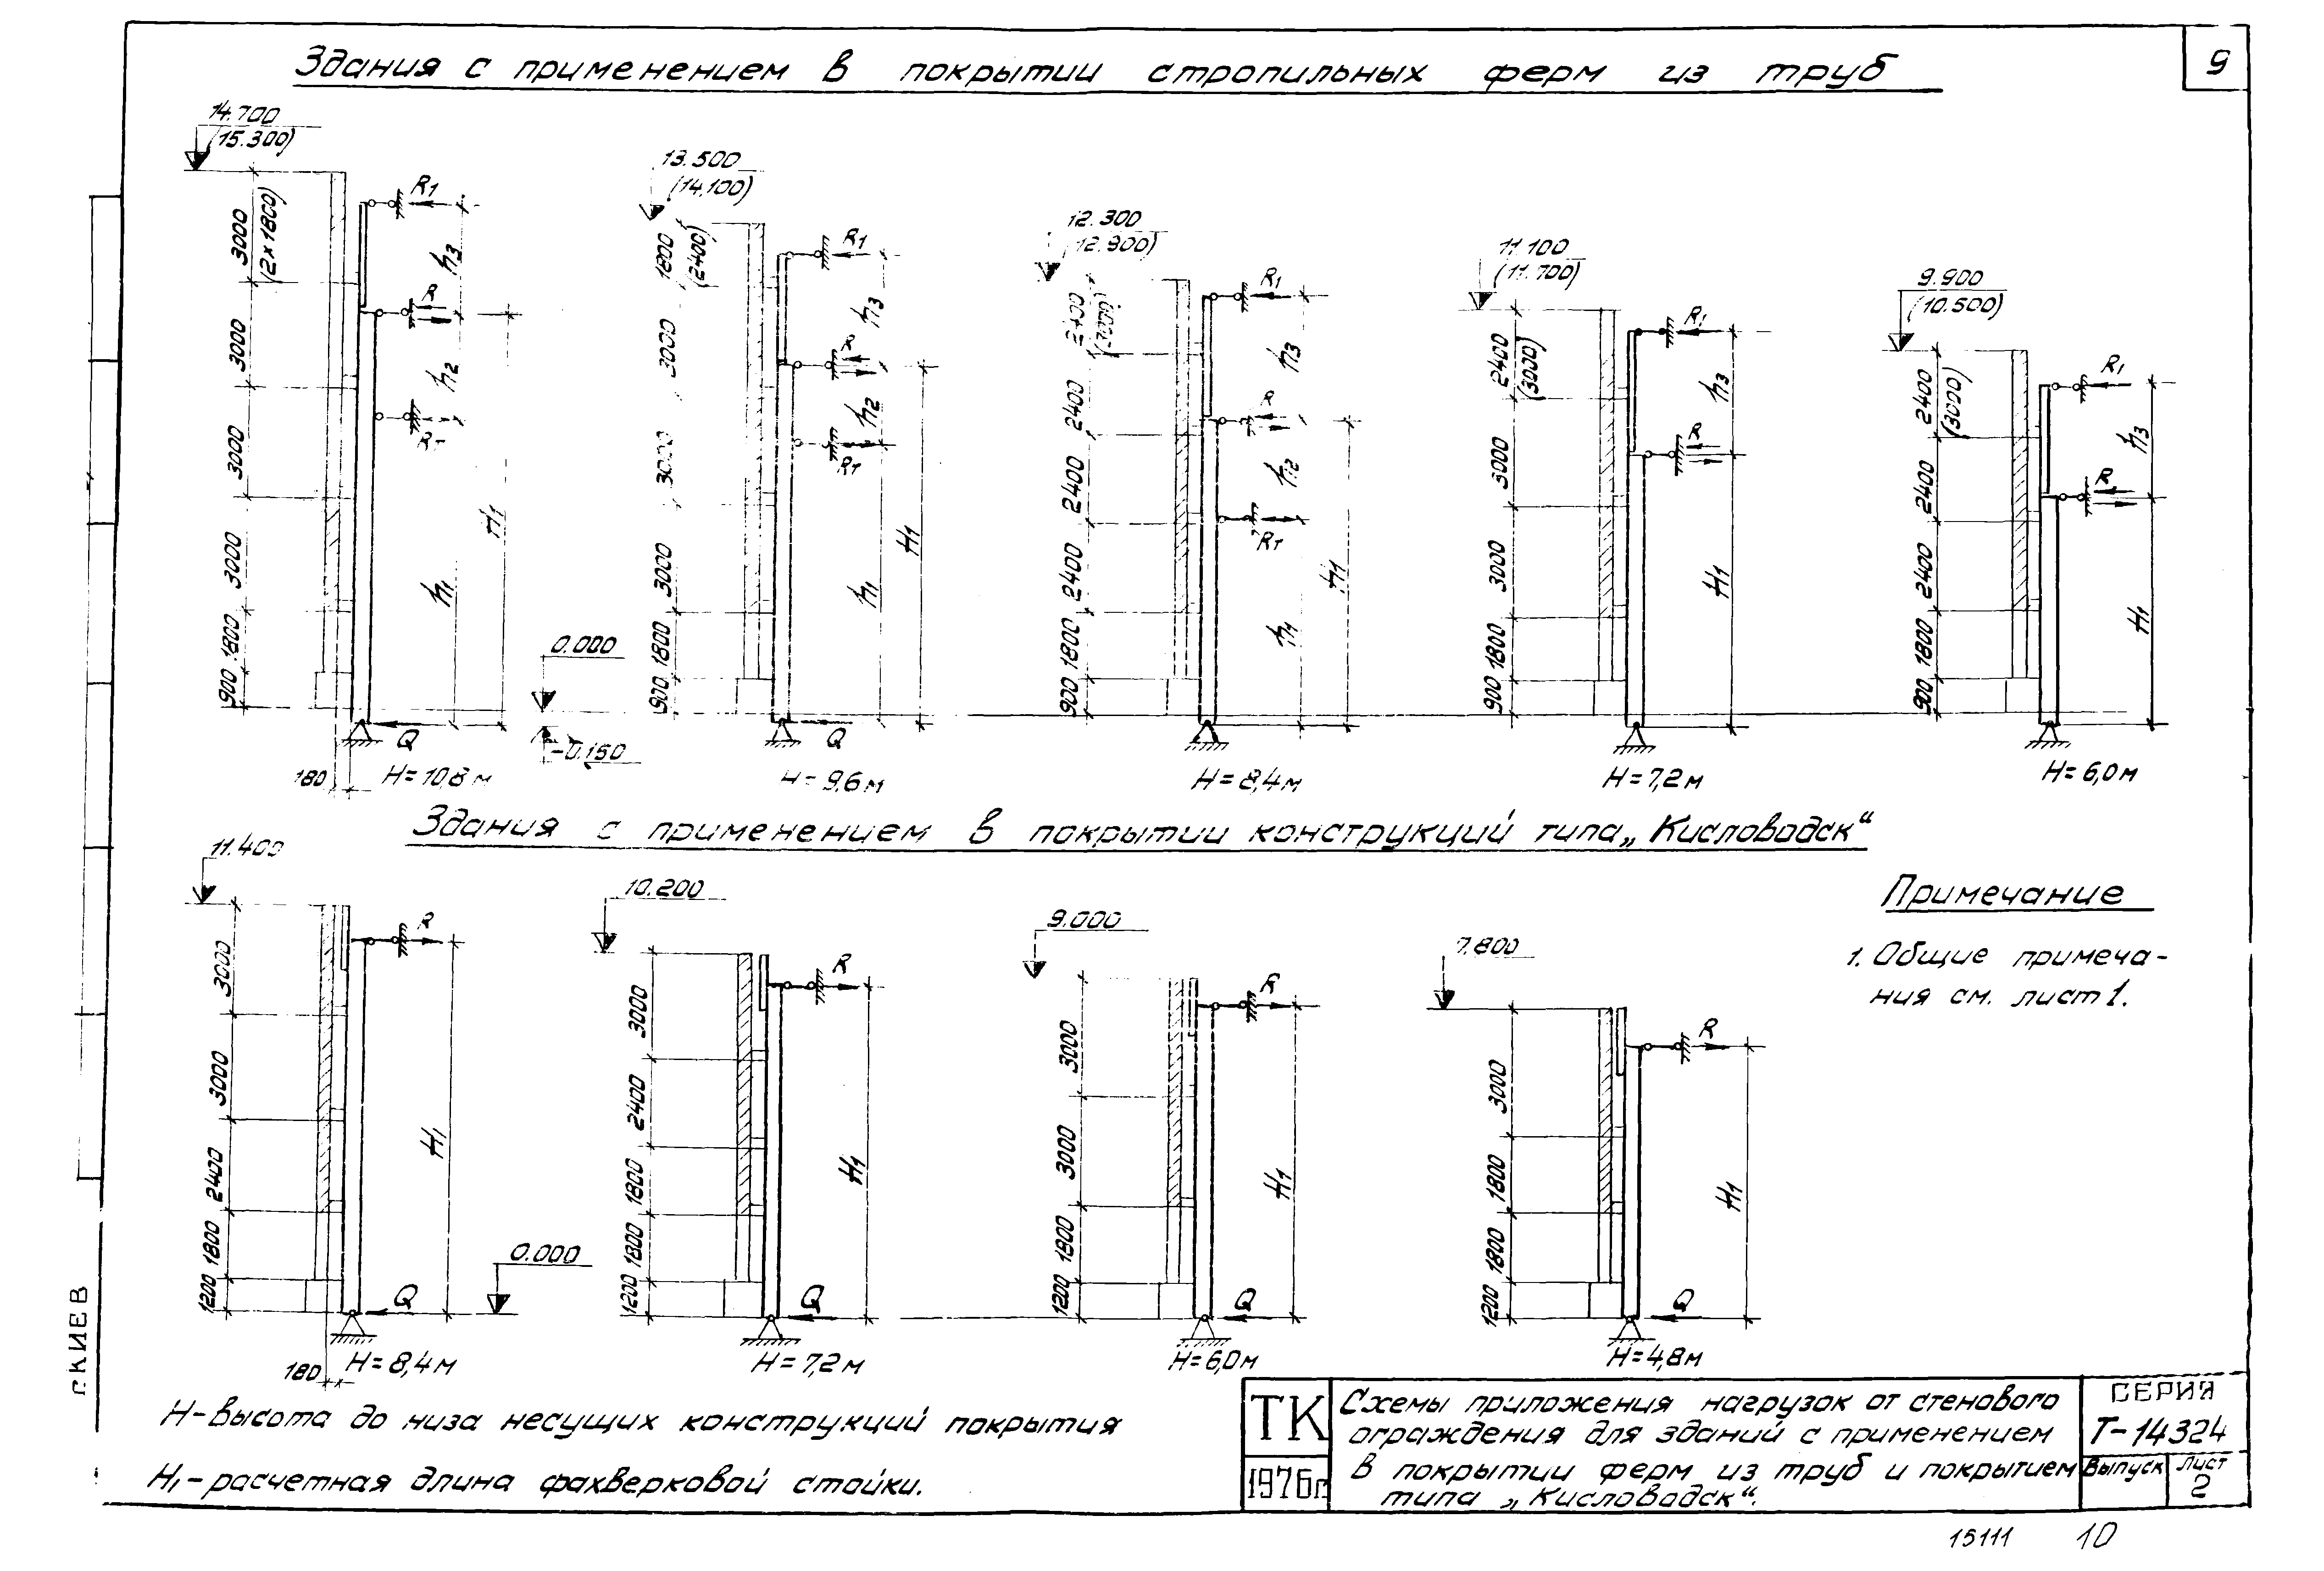 9
Здания с применением в покрытии стропильных ферм из труб
14.700
(15.300)
3000
(2×1800)
3000
3000
3000
1800
900
R1
R
Rт
h3
h2
h1
H1
Q
180
H=10,8м
0.000
-0.150
13.500
(14,100)
1800
(2400)
3000
3000
3000
1800
900
R1
R
Rт
h3
h2
h1
H1
Q
H=9,6м
12.300
(12.900)
2400
(3000)
2400
2400
2400
1800
900
R1
R
Rт
h3
h2
h1
H1
H=8,4м
11.100
(11.700)
2400
(3000)
3000
3000
1800
900
R1
R
h3
H1
H=7,2м
9.900
(10.500)
2400
(3000)
2400
2400
1800
900
R1
R
h3
H1
H=6,0м
Здания с применением в покрытии конструкций типа „Кисловодск“
11.400
3000
3000
2400
1800
1200
R
H1
Q
180
H=8,4м
0.000
10.200
3000
2400
1800
1800
1200
R
H1
Q
H=7,2м
9.000
3000
3000
1800
1200
R
H1
Q
H=6,0м
7.800
3000
1800
1800
1200
R
H1
Q
H=4,8м
Примечание
1. Общие примеча-
ния см. лист 1.
H-высота до низа несущих конструкций покрытия
H1-расчетная длина фахверковой стойки.
г.КИЕВ
ТК
1976г
Схемы приложения нагрузок от стенового
ограждения для зданий с применением
в покрытии ферм из труб и покрытием
типа „Кисловодск“.
СЕРИЯ
Т-14324
Выпуск
Лист
2
15111
10